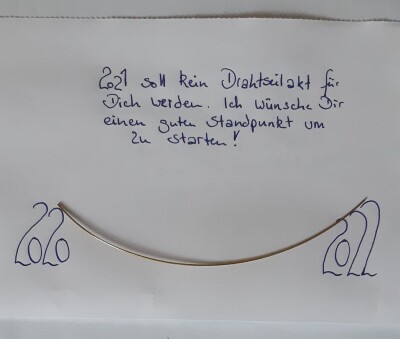 2021 soll kein Drahtseilakt für
Dich werden. Ich wünsche Dir
einen guten Standpunkt um
zu starten!
2020 2022